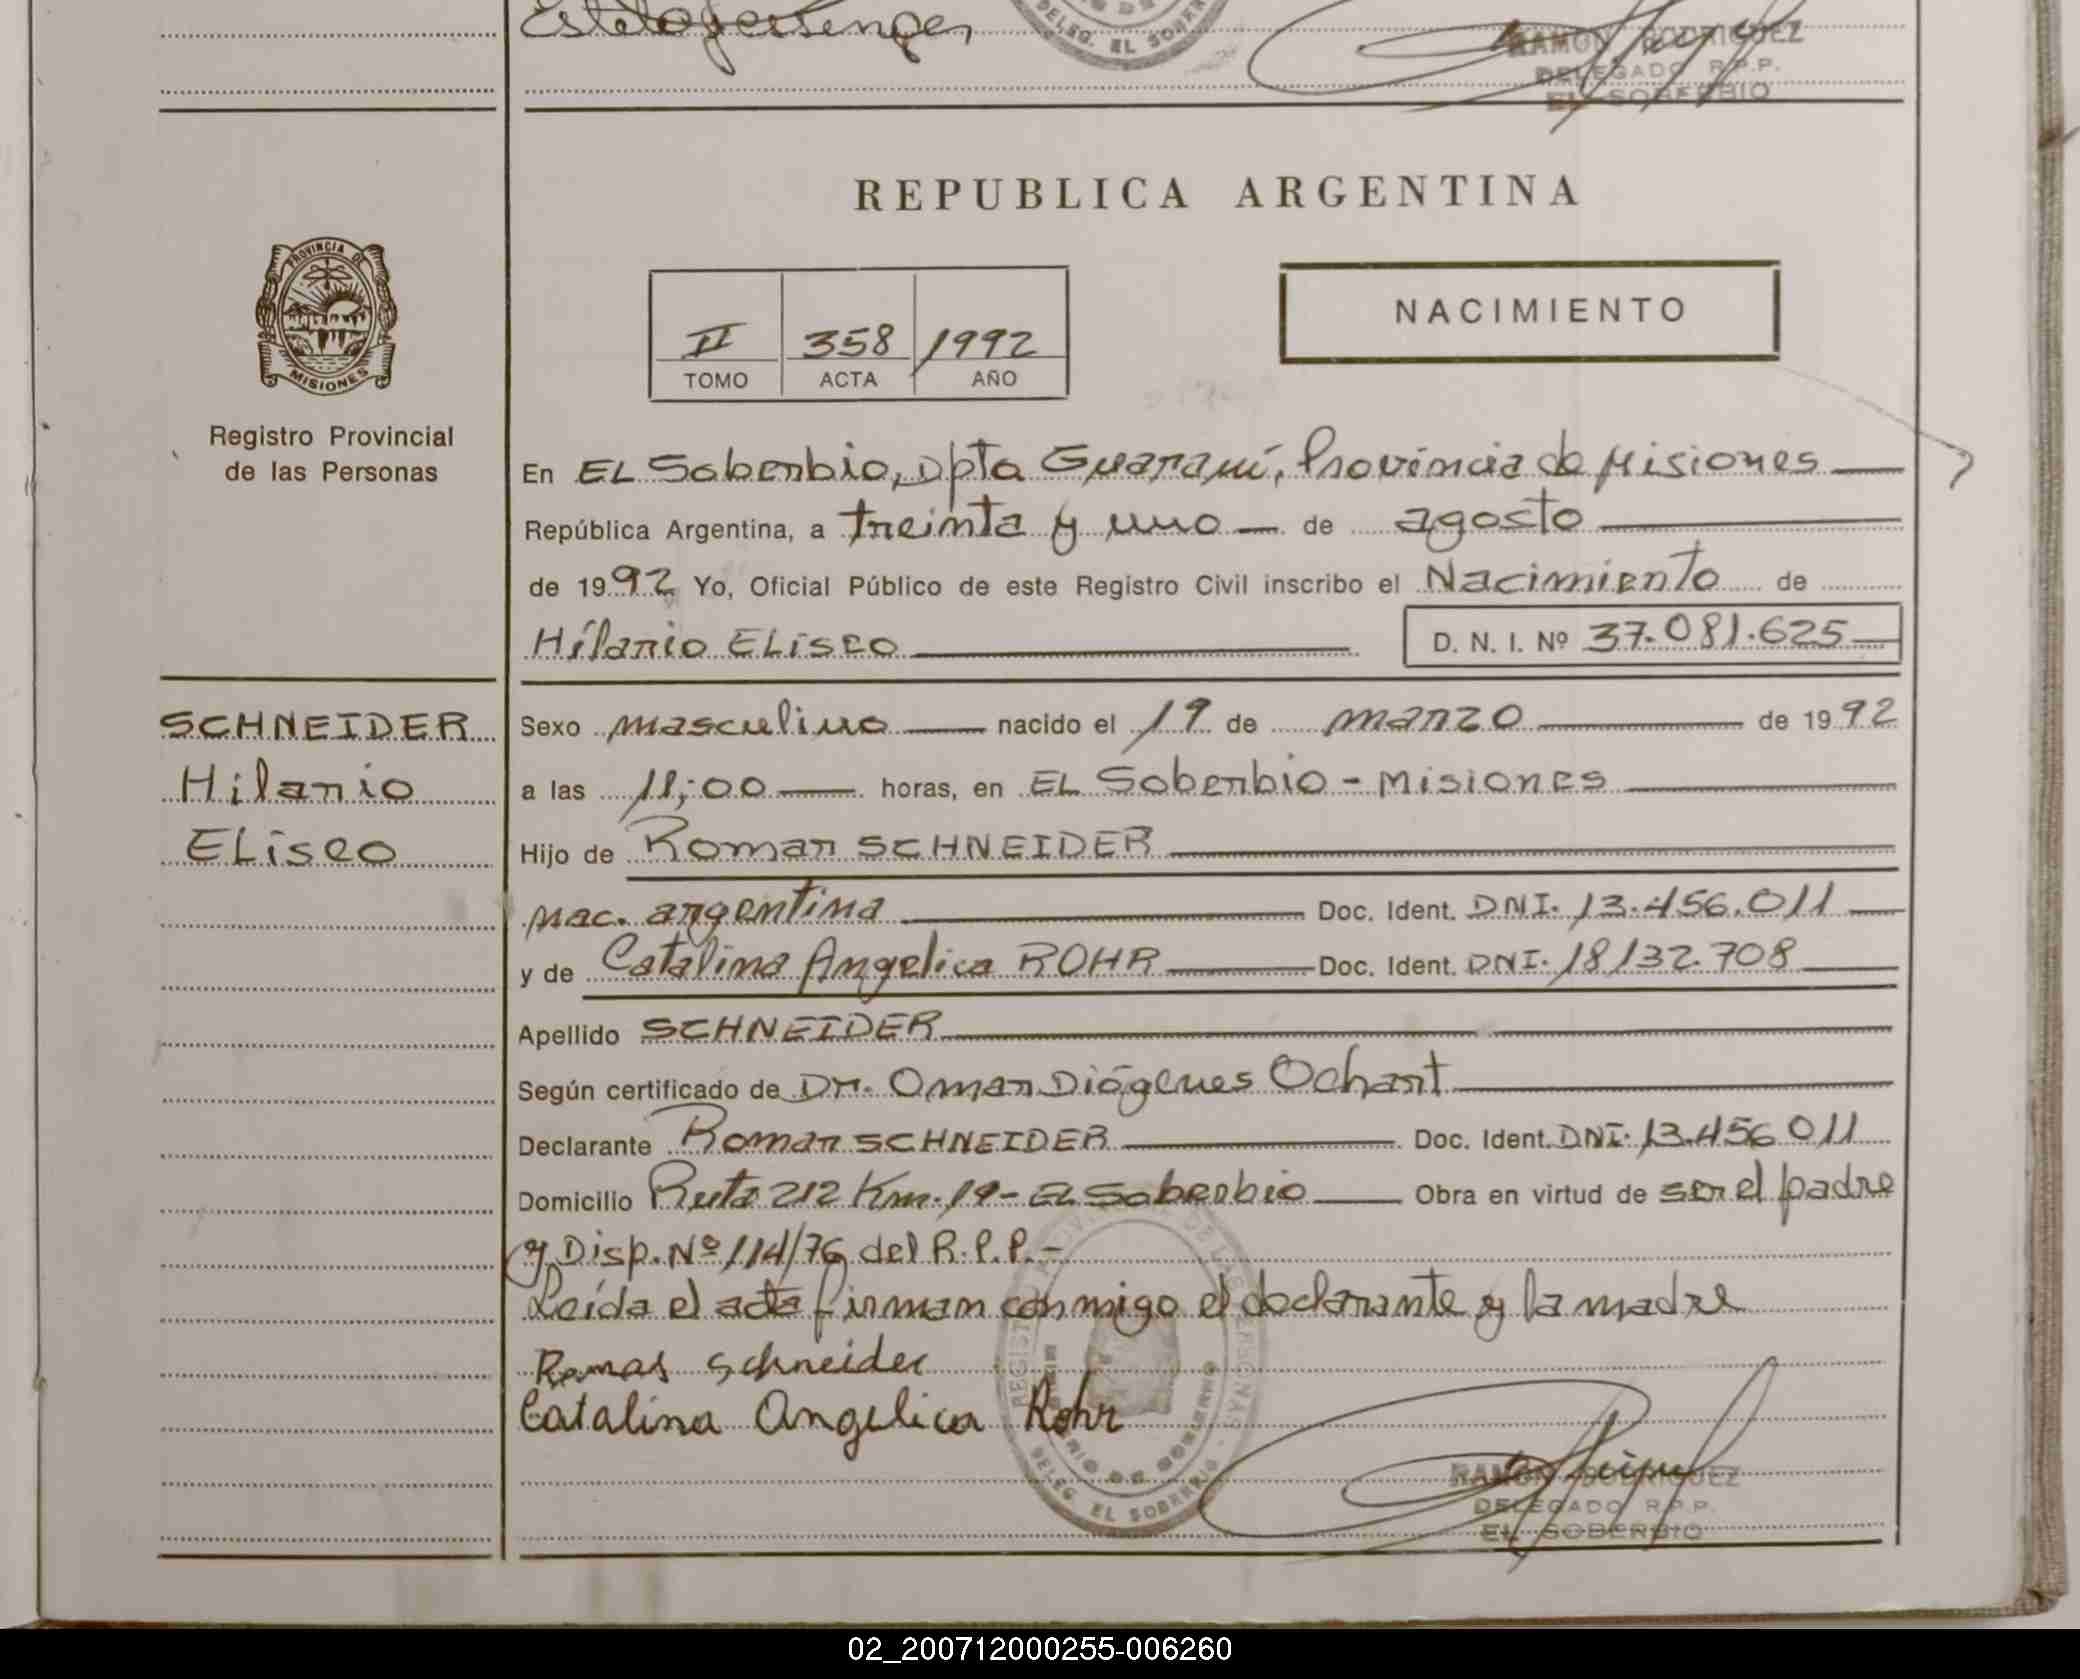 DELEG. EL SOBERBIO
RAMON RODRIGUEZ
DELEGADO R.P.P.
EL SOBERBIO
REPUBLICA ARGENTINA
PROVINCIA DE
MISIONES
Registro Provincial
de las Personas
II 358 1992
TOMO ACTA AÑO
NACIMIENTO
En EL Soberbio, Dpto Guaraní, Provincia de Misiones
República Argentina, a treinta y uno de agosto
de 1992 Yo, Oficial Público de este Registro Civil inscribo el Nacimiento de
Hilario ELiseo D. N. I. Nº 37.081.625
SCHNEIDER
Hilario
ELiseo
Sexo masculino nacido el 19 de marzo de 1992
a las 11,00 horas, en EL Soberbio - Misiones
Hijo de Roman SCHNEIDER
nac. argentina Doc. Ident. DNI. 13.456.011
y de Catalina Angelica ROHR Doc. Ident. DNI. 18132.708
Apellido SCHNEIDER
Según certificado de Dr. Omar Diógenes Ochart
Declarante Roman SCHNEIDER Doc. Ident. DNI. 13.456 011
Domicilio Ruta 212 Km. 19 - EL Soberbio Obra en virtud de ser el padre
y Disp. Nº 114/76 del R.P.P.-
Leída el acta firman conmigo el declarante y la madre
Roman Schneider
Catalina Angelica Rohr
REGISTRO PROVINCIAL DE LAS PERSONAS
MINISTERIO DE GOBIERNO
DELEG. EL SOBERBIO
RAMON RODRIGUEZ
DELEGADO R.P.P.
EL SOBERBIO
02_200712000255-006260